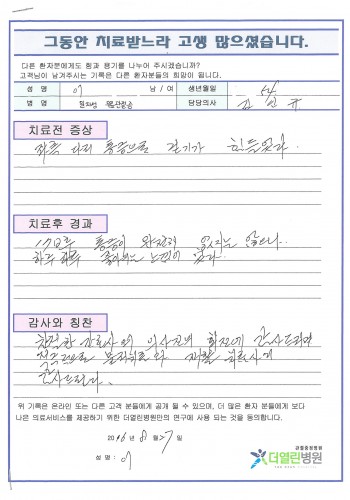 그동안 치료받느라 고생 많으셨습니다.
다른 환자분에게도 힘과 용기를 나누어 주시겠습니까?
고객님이 남겨주시는 기록은 다른 환자분들의 희망이 됩니다.
성 명 이 남 / 여 생년월일
병 명 척추관협착증 담당의사 김
치료전 증상
좌측 다리 통증으로 걷기가 힘들었다.
치료후 경과
통증이 완전히 없지는 않으나
하루 하루 좋아지는 느낌이 있다.
감사와 칭찬
친절한 간호사와 의사선생 감사드리며
물리치료와 재활 치료사께
감사드린다.
위 기록은 온라인 또는 다른 고객 분들에게 공개 될 수 있으며, 더 많은 환자 분들에게 보다
나은 의료서비스를 제공하기 위한 더열린병원만의 연구에 사용 되는 것을 동의합니다.
2016년 8월 27일
성 명 : 이
관절중점병원
더열린병원